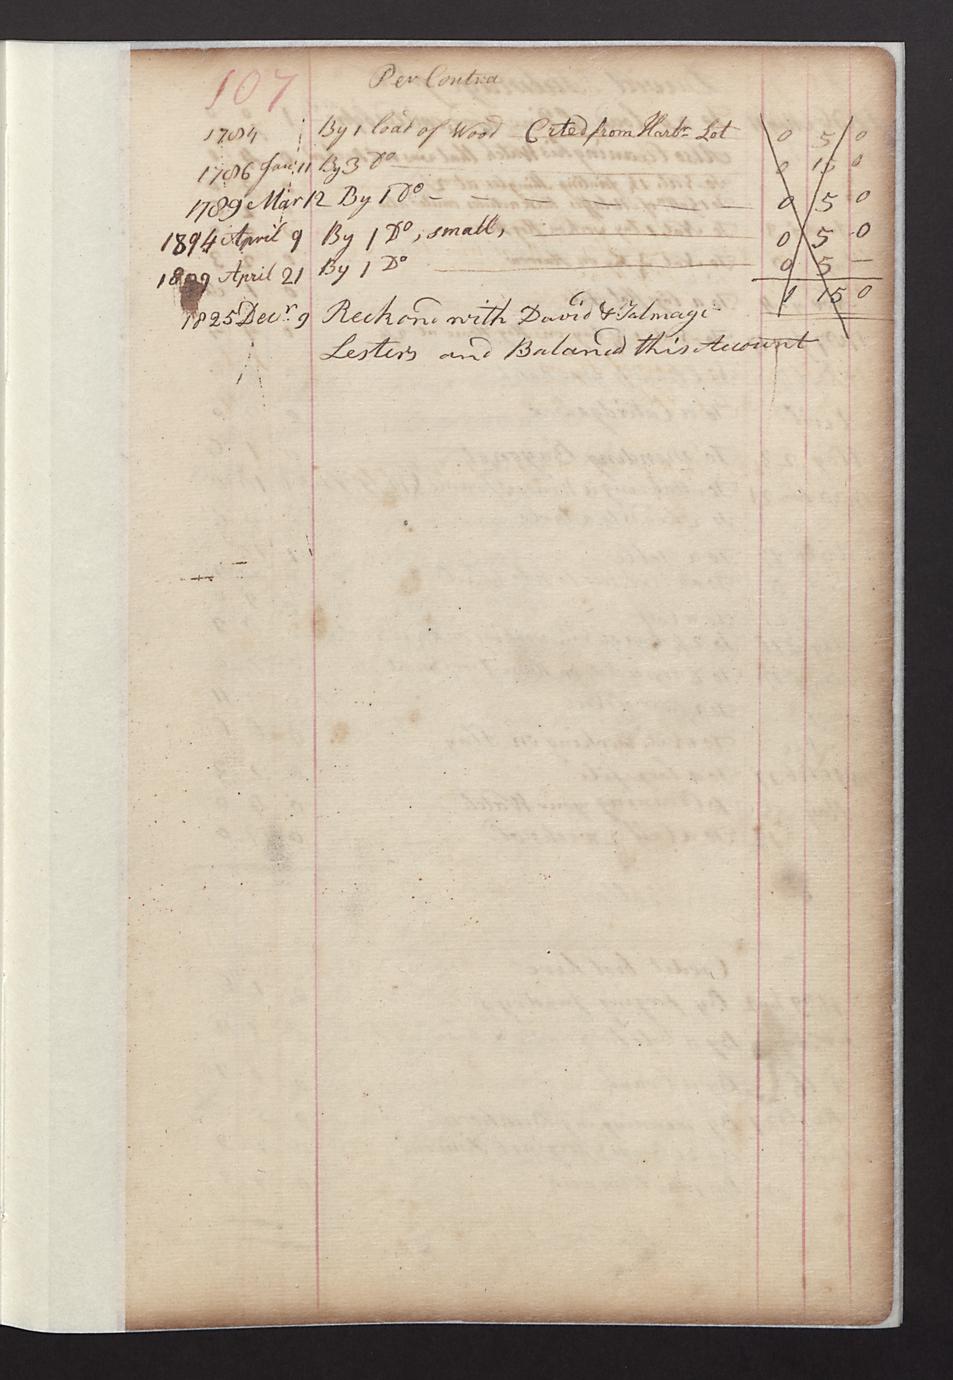 107 Per Contra
1784 By 1 load of Wood Crted from Harbr Lot 0 5 0
1786 Jan 11 By 3 Do 0 15 0
1789 Mar 12 By 1 Do 0 5 0
1894 April 9 By 1 Do, small, 0 5 0
1809 April 21 By 1 Do 0 5 —
1 15 0
1825 Decr 9 Reckond with David & Talmage
Lesters and Balancd this Account